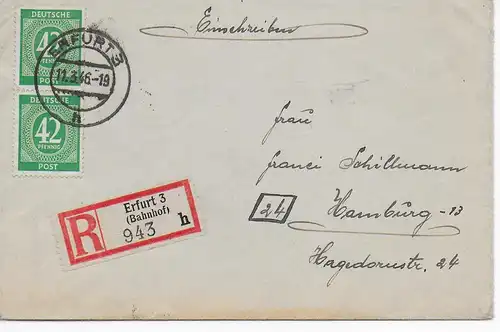 Einschreiben
DEUTSCHE
42
PFENNIG
POST
ERFURT 3
11.3.46-19
h
DEUTSCHE
42
PFENNIG
POST
Frau
Franci Schillmann
24
Hamburg-13
Hagedornstr. 24
R
Erfurt 3
(Bahnhof)
943 h